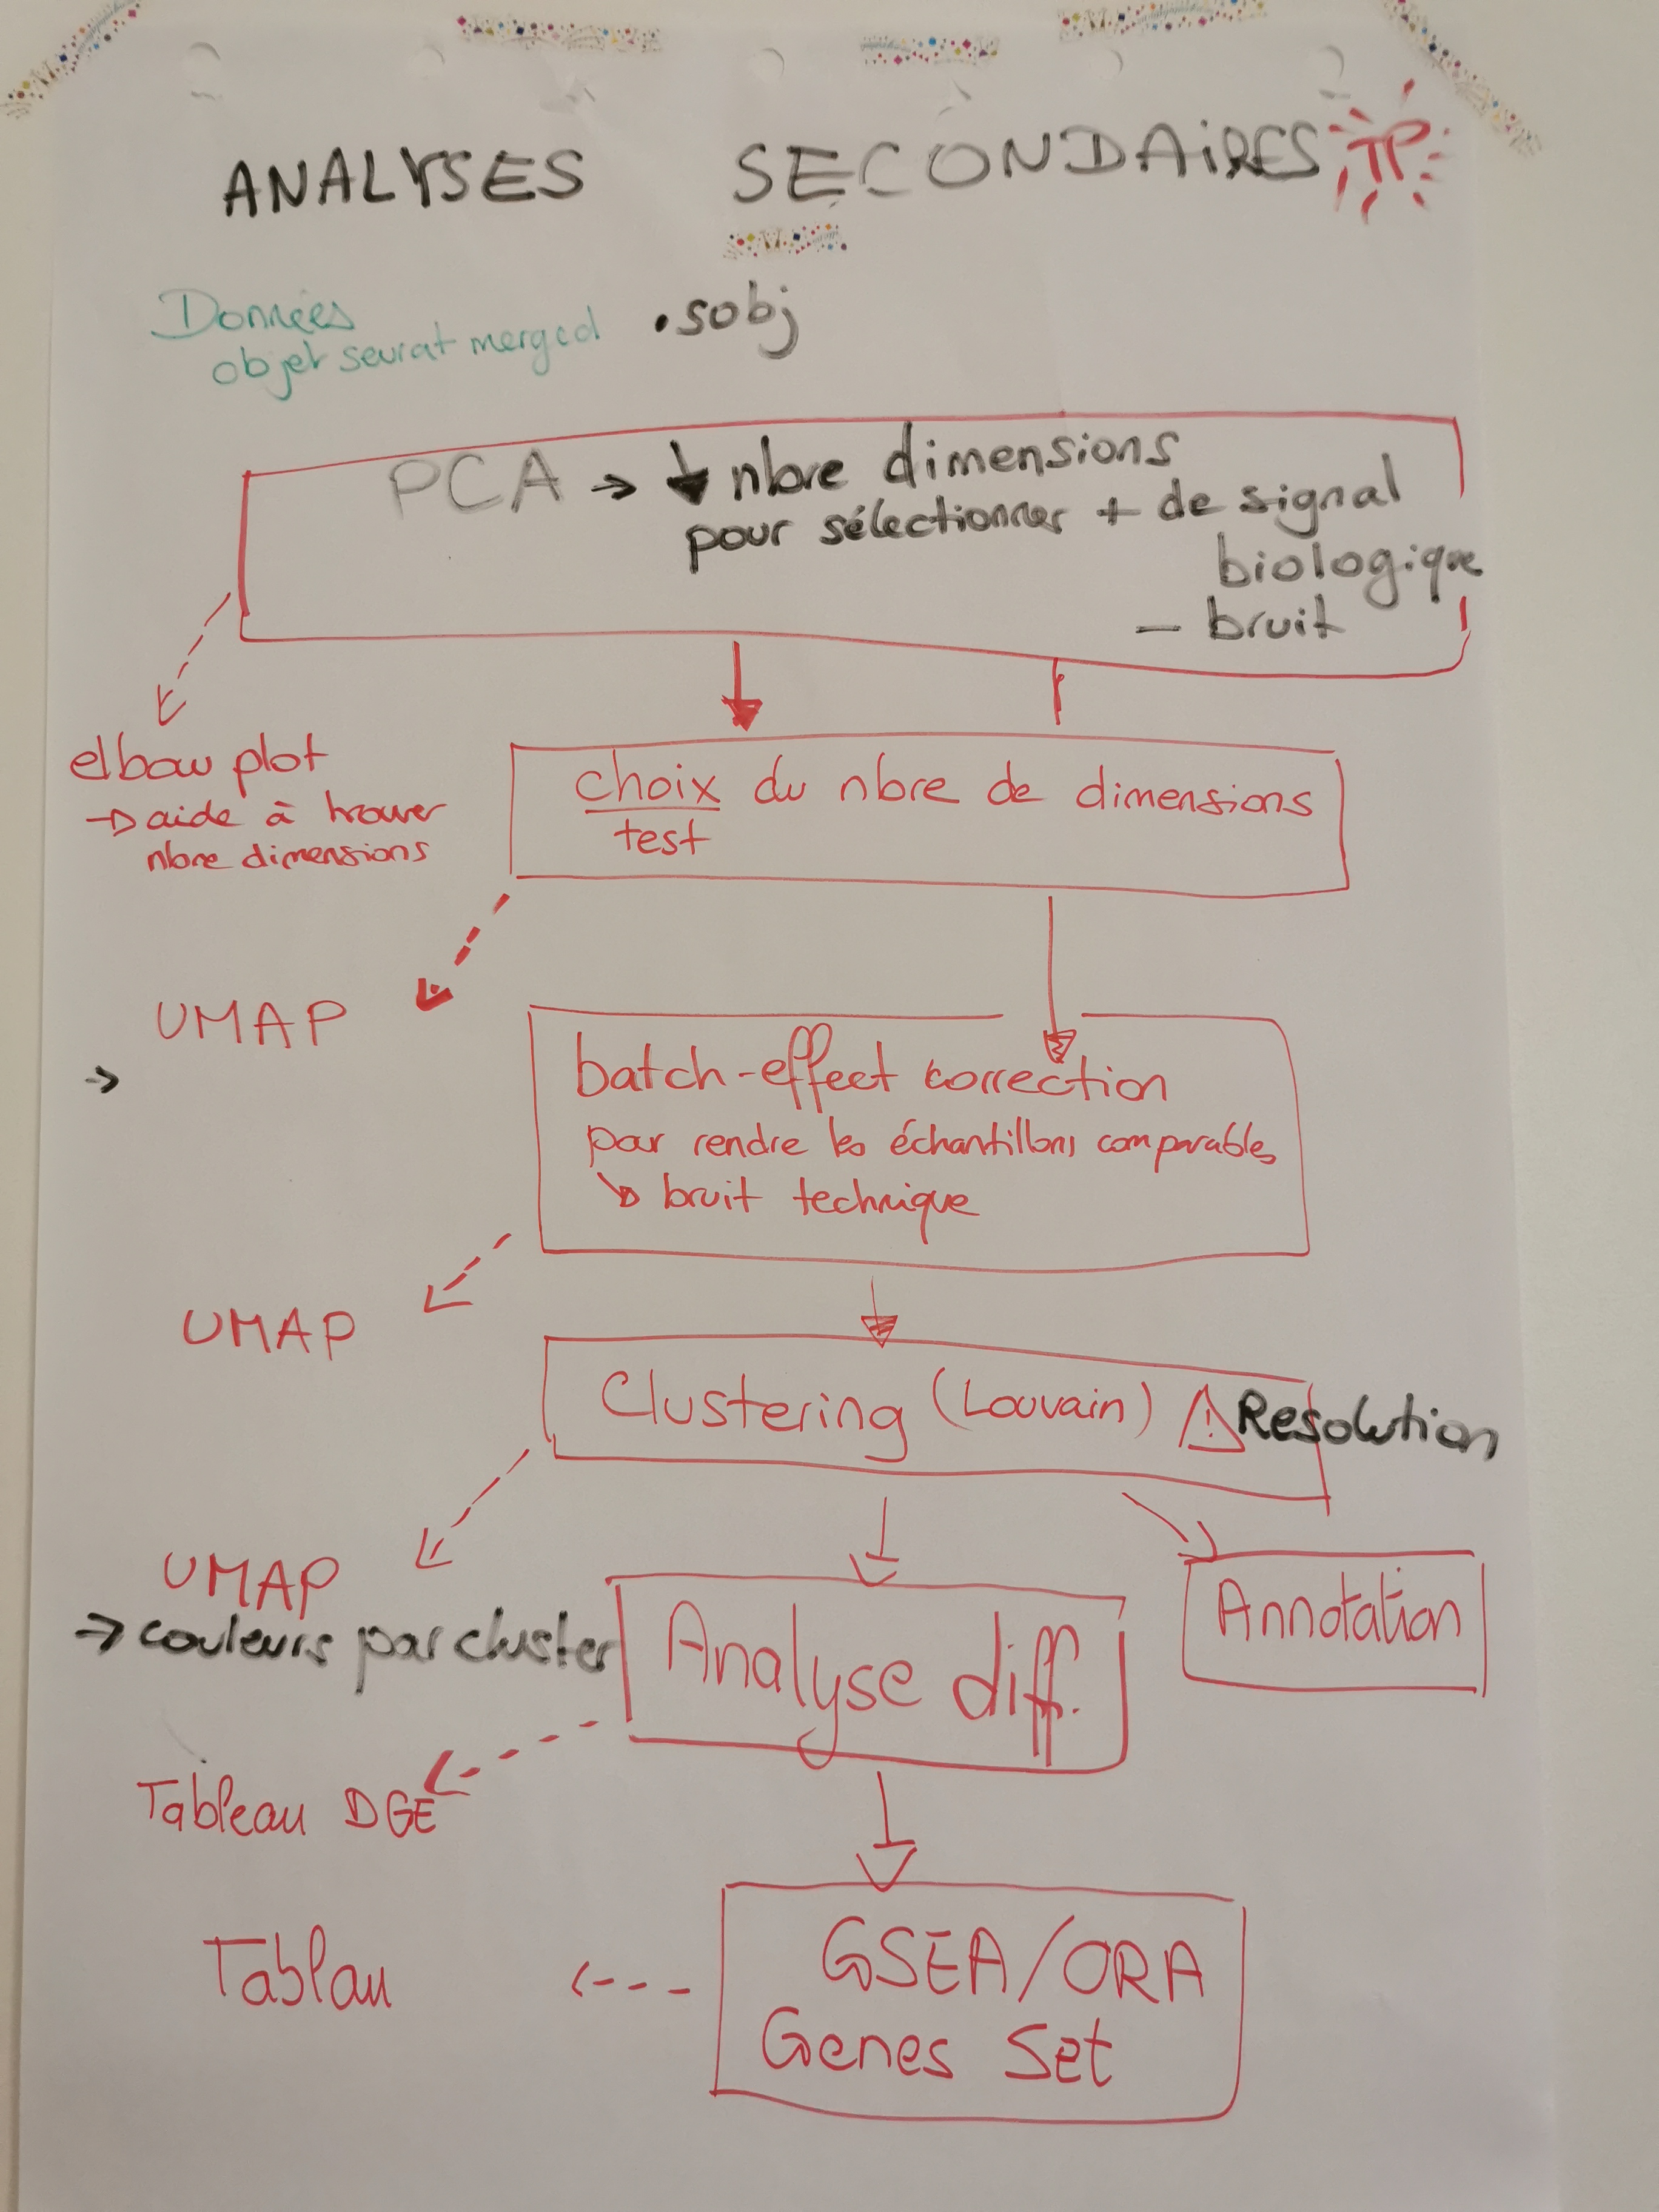 ANALYSES SECONDAIRES TP
Données
objet seurat merged .sobj
PCA → ↓ nbre dimensions
pour sélectionner + de signal
biologique
- bruit
elbow plot
→ aide à trouver
nbre dimensions
choix du nbre de dimensions
test
UMAP
→
batch-effect correction
pour rendre les échantillons comparables
↘ bruit technique
UMAP
Clustering (Louvain) ⚠ Resolution
UMAP
→ couleurs par cluster
Analyse diff.
Annotation
Tableau DGE
GSEA/ORA
Genes Set
Tablau